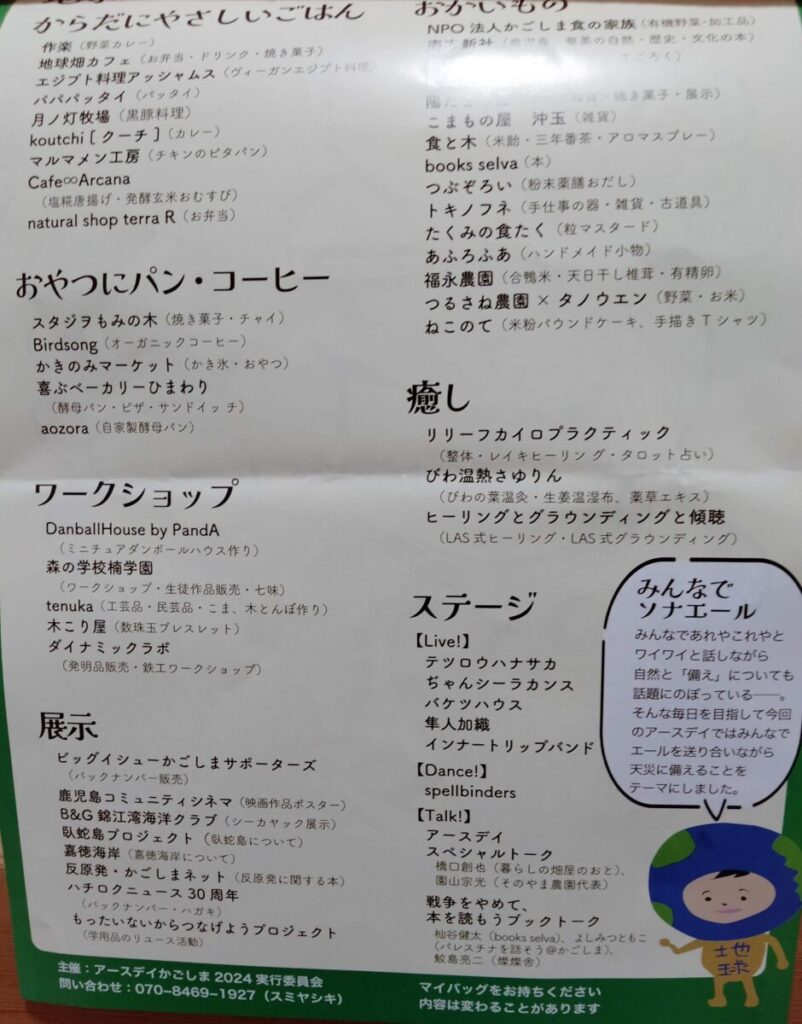 からだにやさしいごはん
作楽（野菜カレー）
地球畑カフェ（お弁当・ドリンク・焼き菓子）
エジプト料理アッシャムス（ヴィーガンエジプト料理）
パパパッタイ（パッタイ）
月ノ灯牧場（黒豚料理）
koutchi [ クーチ ]（カレー）
マルマメン工房（チキンのピタパン）
Cafe∞Arcana
（塩糀唐揚げ・発酵玄米おむすび）
natural shop terra R（お弁当）
おやつにパン・コーヒー
スタジヲもみの木（焼き菓子・チャイ）
Birdsong（オーガニックコーヒー）
かきのみマーケット（かき氷・おやつ）
喜ぶベーカリーひまわり
（酵母パン・ピザ・サンドイッ チ）
aozora（自家製酵母パン）
ワークショップ
DanballHouse by PandA
（ミニチュアダンボールハウス作り）
森の学校楠学園
（ワークショップ・生徒作品販売・七味）
tenuka（工芸品・民芸品・こま、木とんぼ作り）
木こり屋（数珠玉ブレスレット）
ダイナミックラボ
（発明品販売・鉄工ワークショップ）
展示
ビッグイシューかごしまサポーターズ
（バックナンバー販売）
鹿児島コミュニティシネマ（映画作品ポスター）
B&G 錦江湾海洋クラブ（シーカヤック展示）
臥蛇島プロジェクト（臥蛇島について）
嘉徳海岸（嘉徳海岸について）
反原発・かごしまネット（反原発に関する本）
ハチロクニュース 30 周年
（バックナンバー・ハガキ）
もったいないからつなげようプロジェクト
（学用品のリユース活動）
おかいもの
NPO 法人かごしま食の家族（有機野菜・加工品）
自然・歴史・文化の本）
焼き菓子・展示）
こまもの屋 沖玉（雑貨）
食と木（米飴・三年番茶・アロマスプレー）
books selva（本）
つぶぞろい（粉末薬膳おだし）
トキノフネ（手仕事の器・雑貨・古道具）
たくみの食たく（粒マスタード）
あふろふあ（ハンドメイド小物）
福永農園（合鴨米・天日干し椎茸・有精卵）
つるさね農園 × タノウエン（野菜・お米）
ねこのて（米粉パウンドケーキ、手描き T シャツ）
癒し
リリーフカイロプラクティック
（整体・レイキヒーリン グ・タロット占い）
びわ温熱さゆりん
（びわの葉温灸・生姜温湿布、薬草エキス）
ヒーリングとグラウンディングと傾聴
（LAS 式ヒーリング・LAS 式グラウンディング）
ステージ
【Live!】
テツロウハナサカ
ぢゃんシーラカンス
バケツハウス
隼人加織
インナートリップバンド
【Dance!】
spellbinders
【Talk!】
アースデイ
スペシャルトーク
橋口創也（暮らしの畑屋のおと）、
園山宗光（そのやま農園代表）
戦争をやめて、
本を読もうブックトーク
杣谷健太（books selva）、よしみつともこ
（パレスチナを話そう@かごしま）、
鮫島亮二（燦燦舎）
みんなで
ソナエール
みんなであれやこれやと
ワイワイと話しながら
自然と「備え」についても
話題にのぼっている――。
そんな毎日を目指して今回
のアースデイではみんなで
エールを送り合いながら
天災に備えることを
テーマにしました。
地
球
主催：アースデイかごしま 2024 実行委員会
問い合わせ：070-8469-1927（スミヤシキ）
マイバッグをお持ちください
内容は変わることがあります